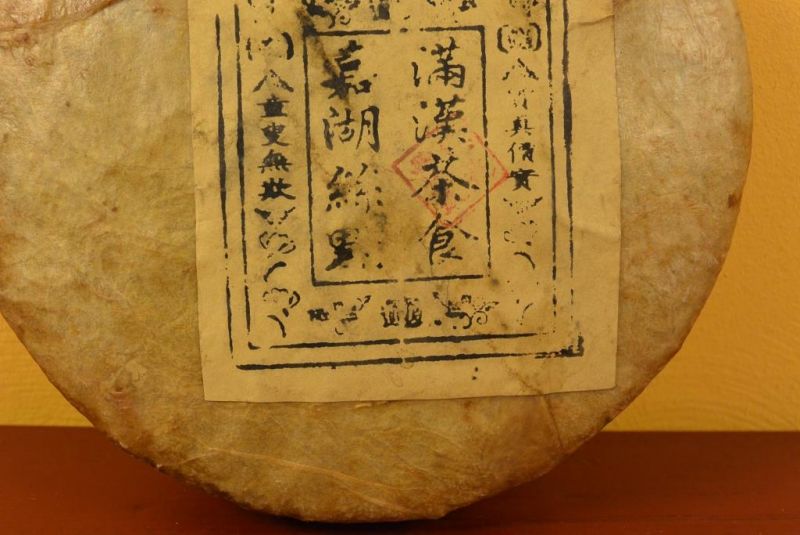 貨真價實
滿漢茶食
嘉湖細點
童叟無欺